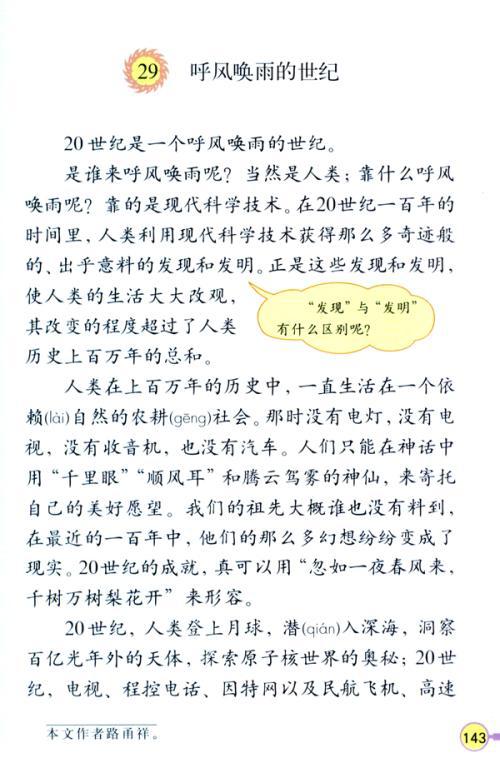 29
呼风唤雨的世纪
20世纪是一个呼风唤雨的世纪。
是谁来呼风唤雨呢？当然是人类；靠什么呼风
唤雨呢？靠的是现代科学技术。在20世纪一百年的
时间里，人类利用现代科学技术获得那么多奇迹般
的、出乎意料的发现和发明。正是这些发现和发明，
使人类的生活大大改观，
其改变的程度超过了人类
历史上百万年的总和。
“发现”与“发明”
有什么区别呢？
人类在上百万年的历史中，一直生活在一个依
赖(lài)自然的农耕(gēng)社会。那时没有电灯，没有电
视，没有收音机，也没有汽车。人们只能在神话中
用“千里眼”“顺风耳”和腾云驾雾的神仙，来寄托
自己的美好愿望。我们的祖先大概谁也没有料到，
在最近的一百年中，他们的那么多幻想纷纷变成了
现实。20世纪的成就，真可以用“忽如一夜春风来，
千树万树梨花开”来形容。
20世纪，人类登上月球，潜(qián)入深海，洞察
百亿光年外的天体，探索原子核世界的奥秘；20世
纪，电视、程控电话、因特网以及民航飞机、高速
本文作者路甬祥。
143